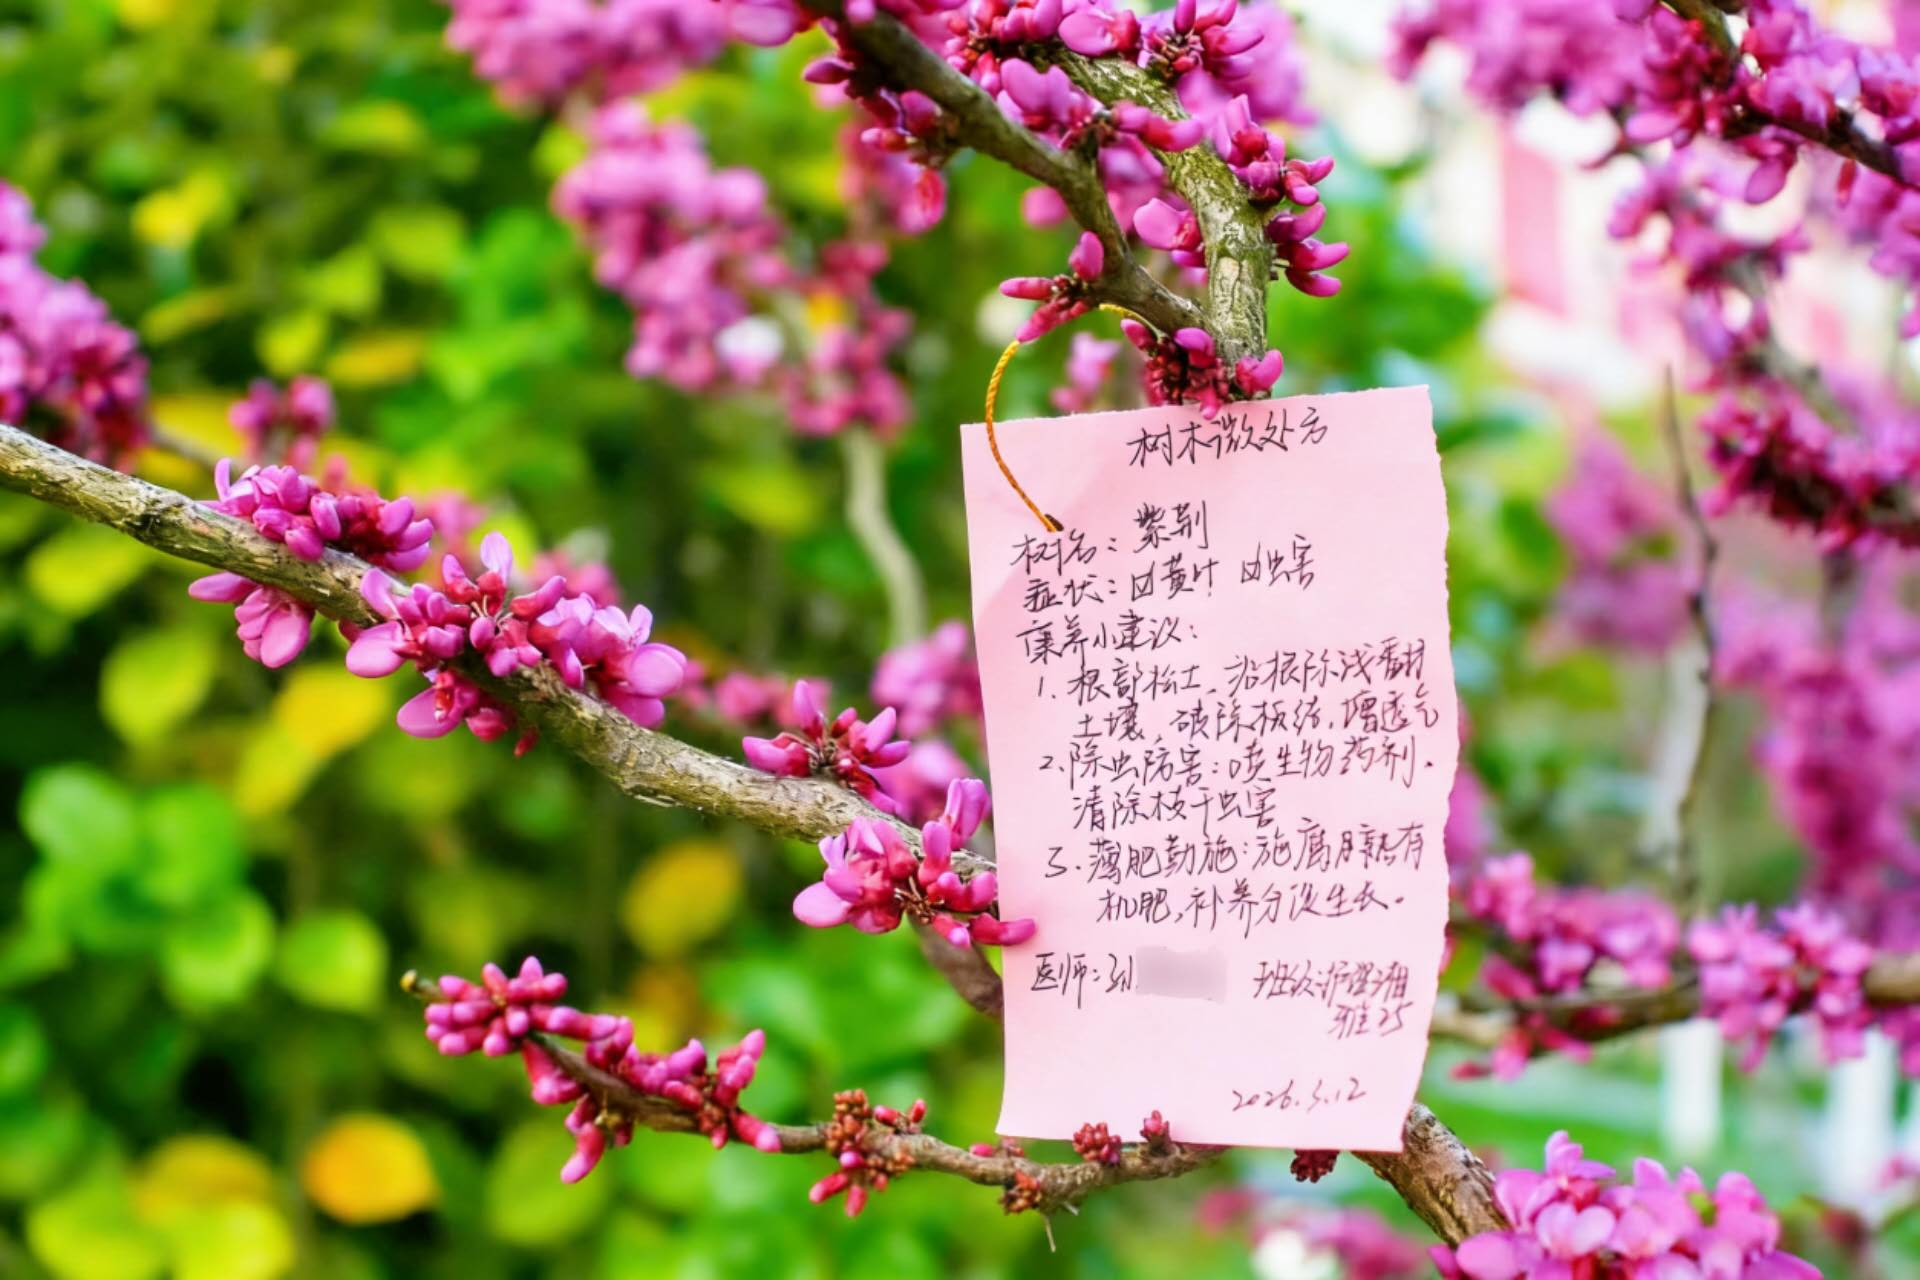 树木微处方
树名：紫荆
症状：☑黄叶 ☑虫害
康养小建议：
1.根部松土，沿根际浅翻
土壤，破除板结，增透气
2.除虫防害：喷生物药剂.
清除枝干虫害
3.薄肥勤施：施腐熟有
机肥，补养分促生长。
医师：孙 班级：护理湘
雅25
2026.3.12